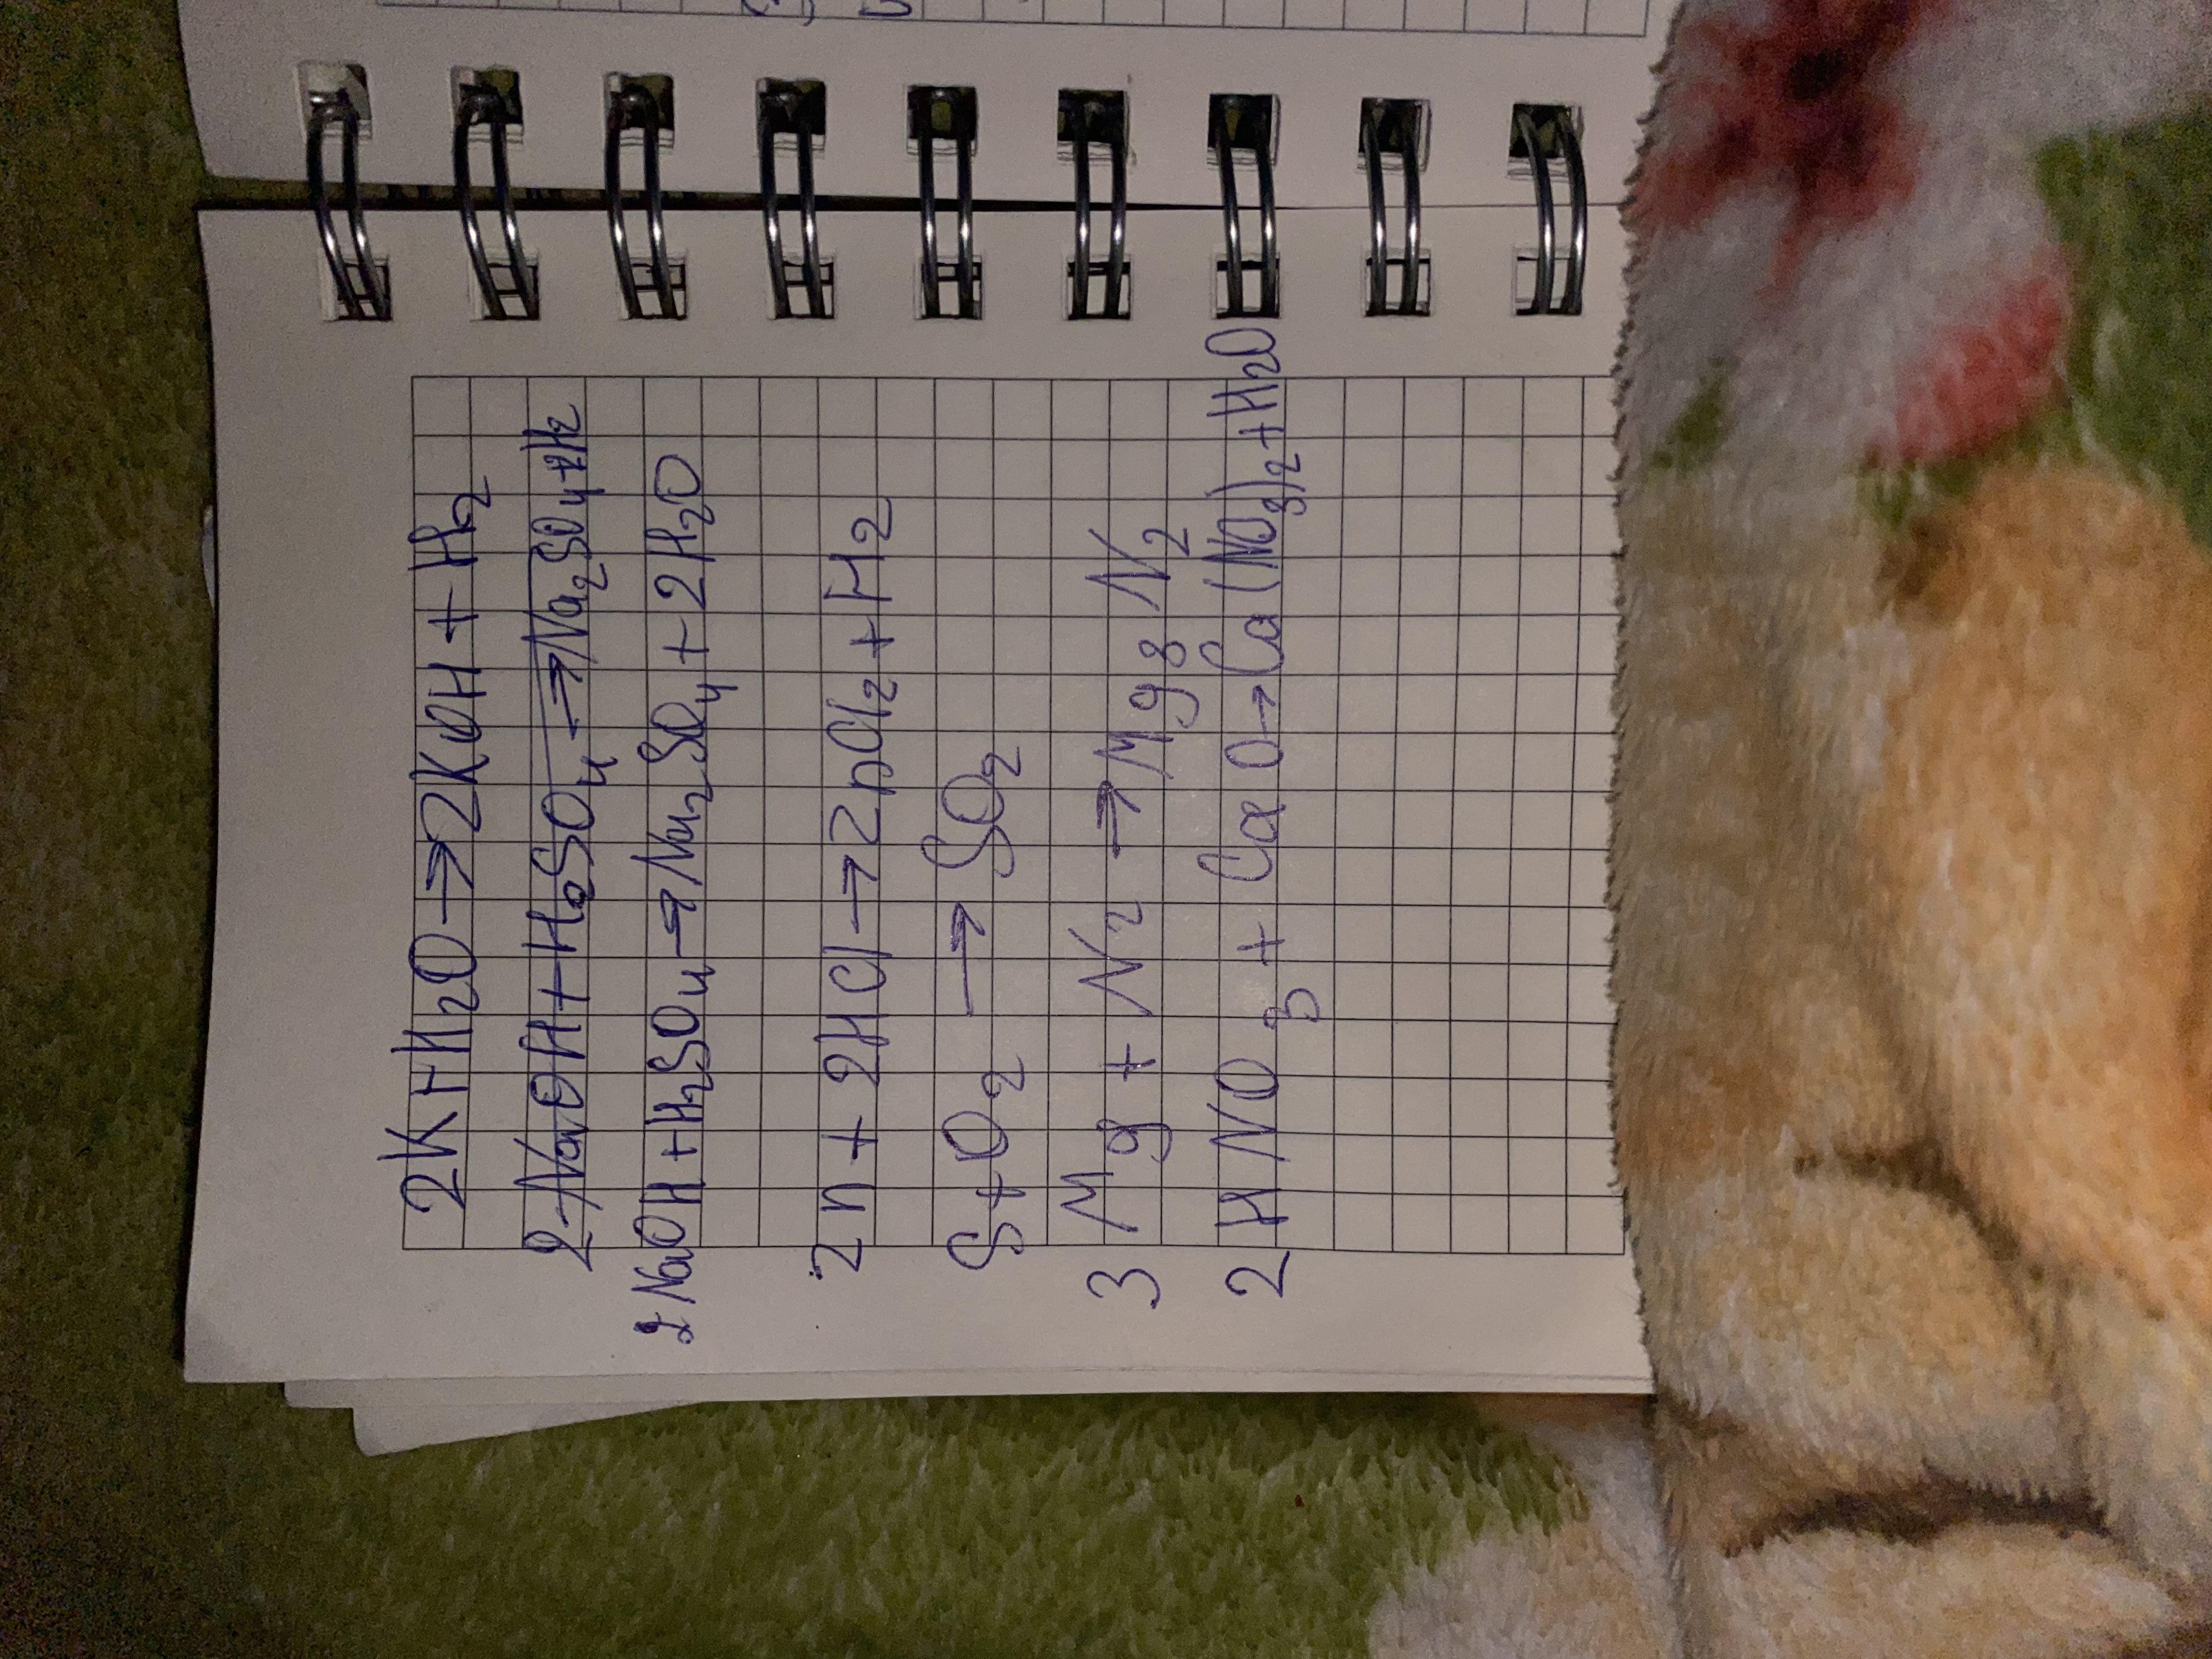 2K+H₂O→2KOH + H₂
2 NaOH + H₂SO₄ → Na₂SO₄ + H₂
2 NaOH + H₂SO₄ → Na₂SO₄ + 2H₂O
Zn + 2HCl → ZnCl₂ + H₂
S + O₂ → SO₂
3 Mg + N₂ → Mg₃ N₂
2 HNO₃ + CaO → Ca(NO₃)₂ + H₂O